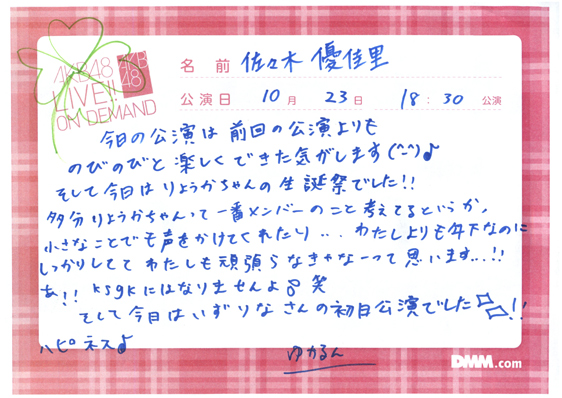 AKB48
LIVE!!
ON DEMAND
AKB
48
名前 佐々木 優佳里
公演日 10月 23日 18:30 公演
今日の公演は前回の公演よりも
のびのびと楽しくできた気がします(^-^)♪
そして今日はりょうかちゃんの生誕祭でした!!
多分りょうかちゃんって一番メンバーのこと考えてるというか,
小さなことでも声をかけてくれたり... わたしよりも年下なのに
しっかりしてて わたしも頑張らなきゃなーって思います...!!
あ!! ksgkにはなりませんよ 笑
そして今日はいずりなさんの初日公演でした!!
ハピネス♪
ゆかるん
DMM.com